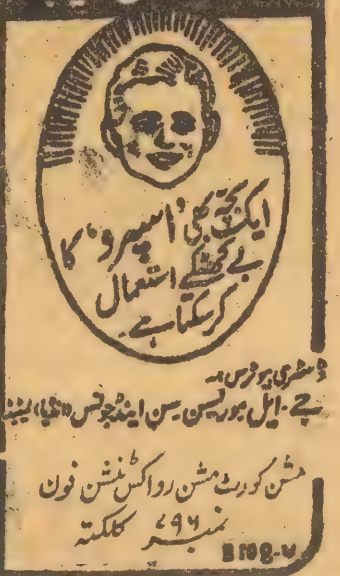 ایک بچہ بھی 'اسپرو' کا
بے کھٹکے استعمال
کرسکتا ہے۔
ڈسٹری بیوٹرس:۔
جے۔ ایل موریسن سن اینڈ جونس (انڈیا) لمیٹڈ
مشن کورٹ مشن رو اکس ٹنشن فون
نمبر ۷۹۶ کلکتہ